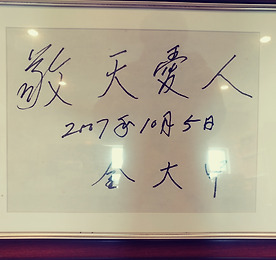 敬天愛人
2007年10月5日
金大中